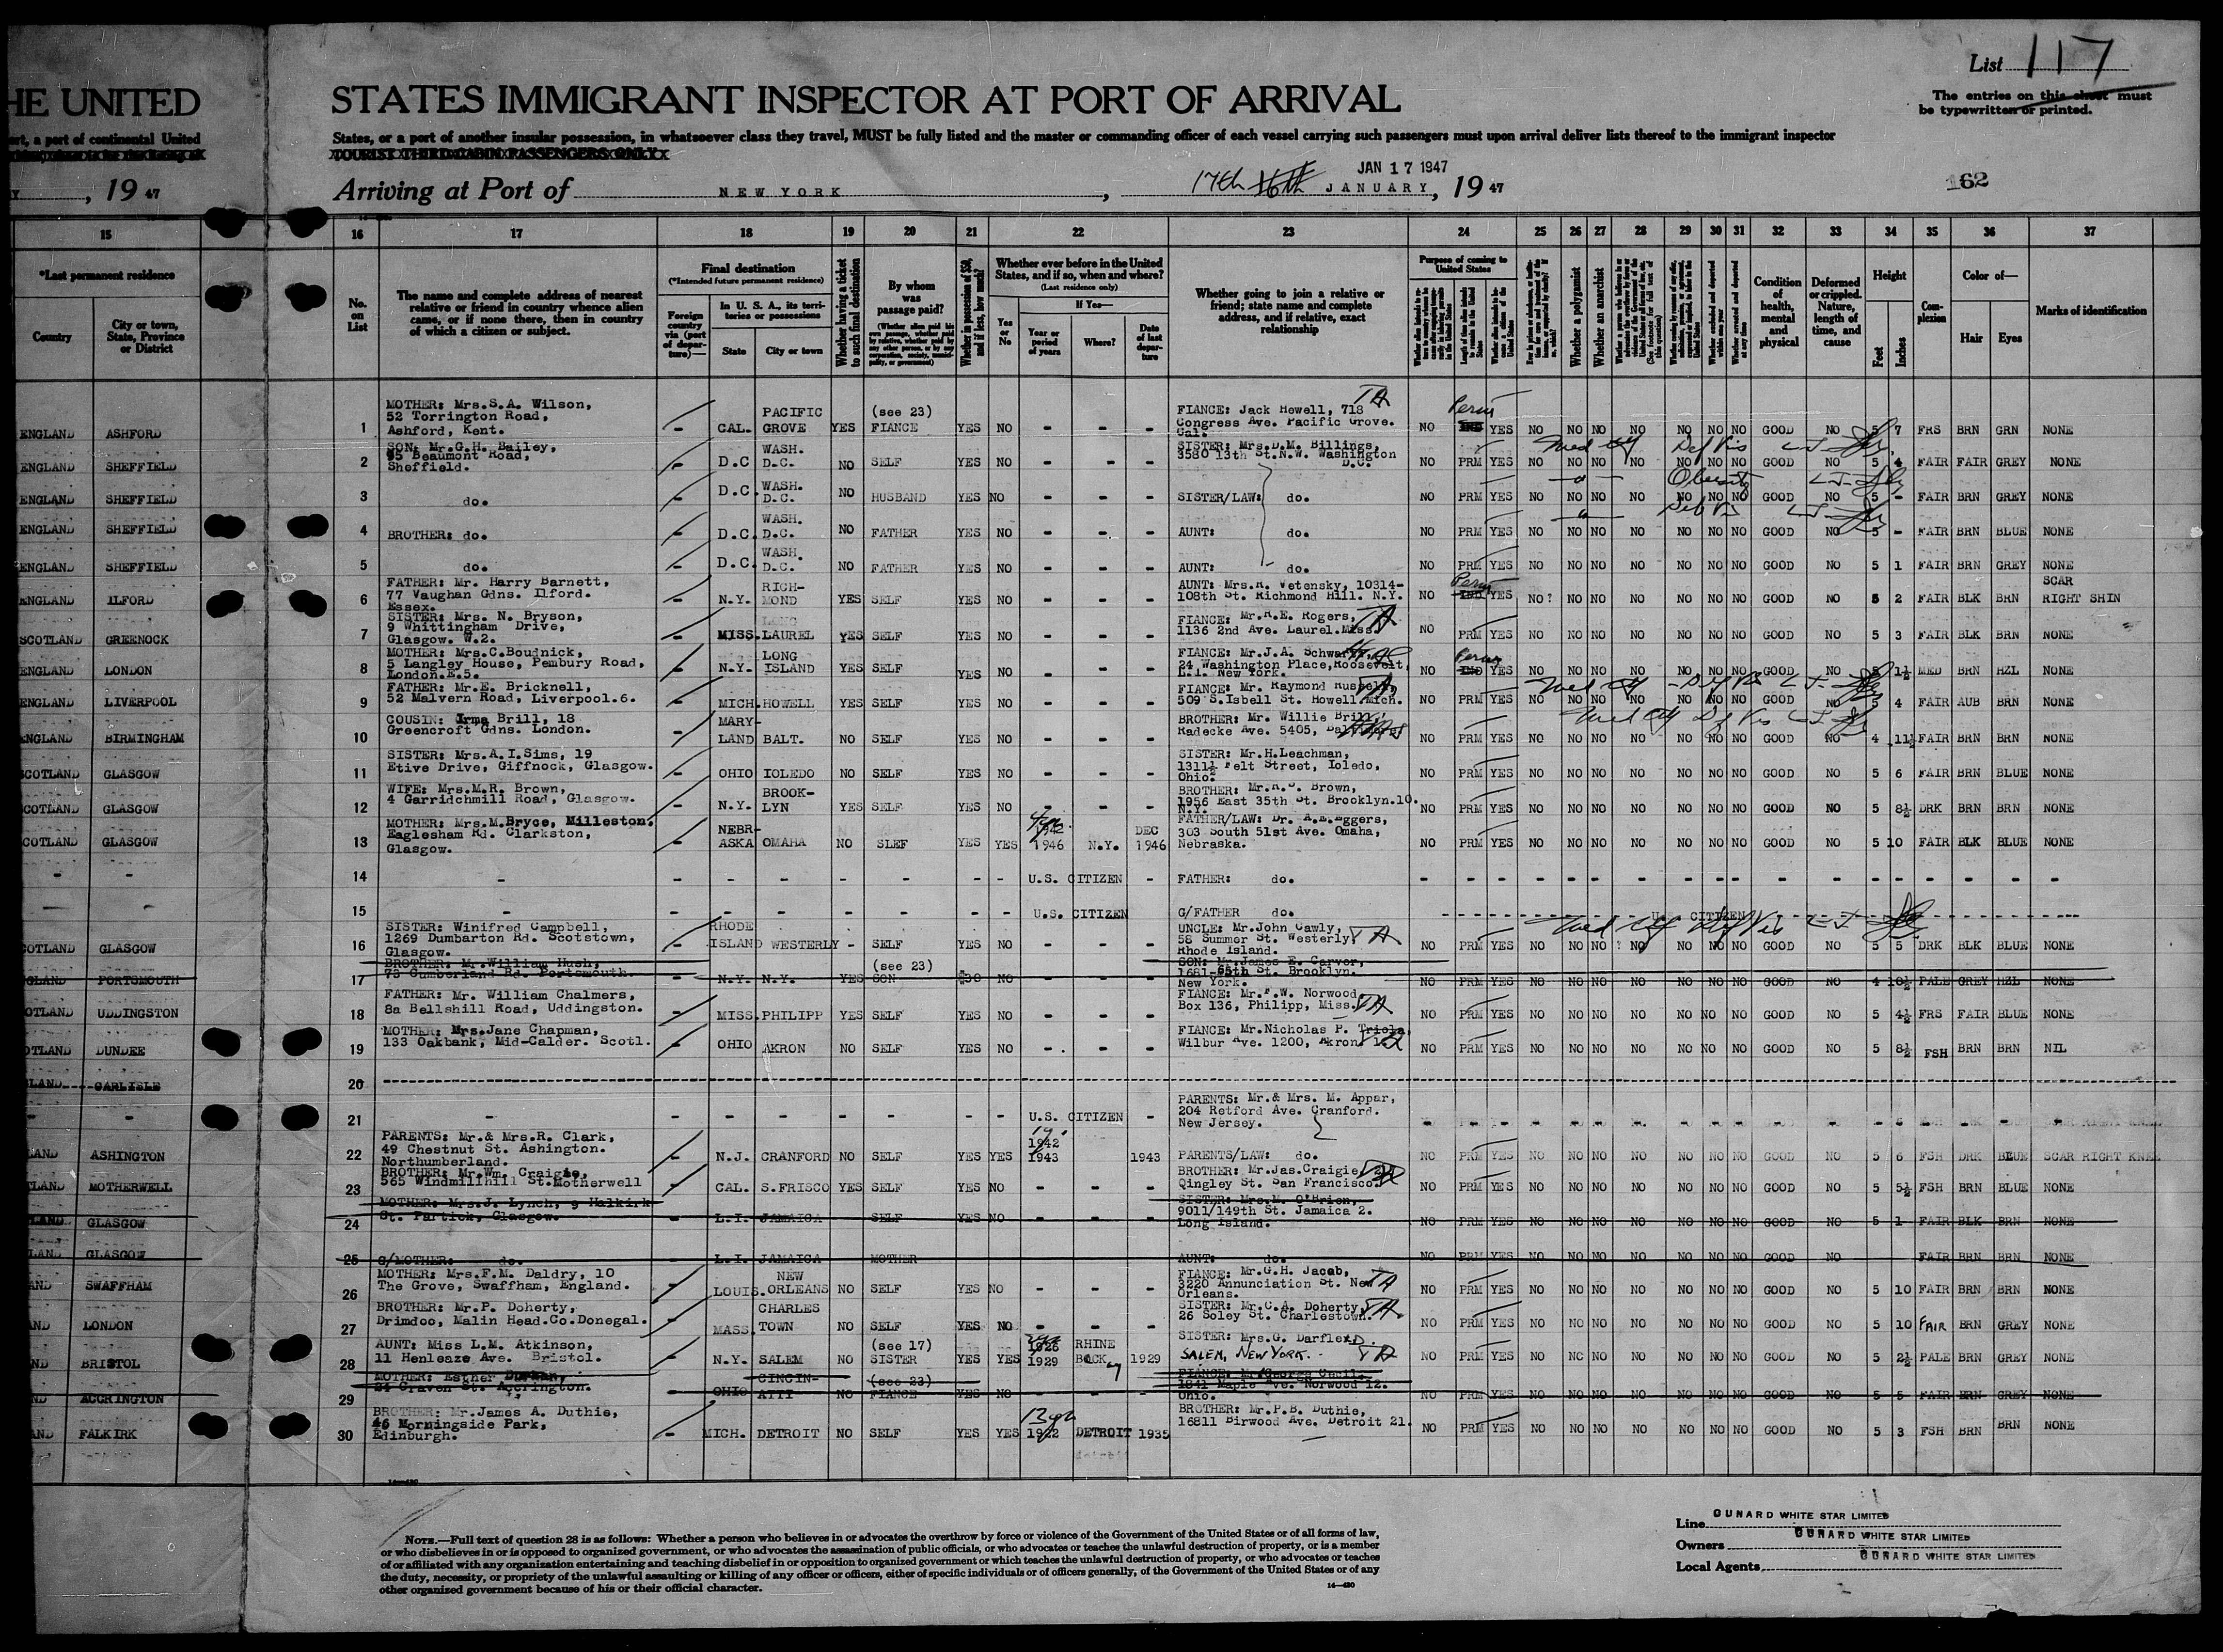 List 117
HE UNITED STATES IMMIGRANT INSPECTOR AT PORT OF ARRIVAL
The entries on this sheet must
be typewritten or printed.
ort, a part of continental United States, or a part of another insular possession, in whatsoever class they travel, MUST be fully listed and the master or commanding officer of each vessel carrying such passengers must upon arrival deliver lists thereof to the immigrant inspector
TOURIST THIRD CABIN PASSENGERS ONLY
JAN 17 1947
Y, 19 47 Arriving at Port of NEW YORK, 17th 16th JANUARY, 19 47
162
15 16 17 18 19 20 21 22 23 24 25 26 27 28 29 30 31 32 33 34 35 36 37
*Last permanent residence
Country
City or town, State, Province or District
No. on List
The name and complete address of nearest relative or friend in country whence alien came, or if none there, then in country of which a citizen or subject.
Final destination
(*Intended future permanent residence)
Foreign country via (port of departure)—
In U. S. A., its territories or possessions
State
City or town
Whether having a ticket to such final destination
By whom was passage paid?
(Whether alien paid his own passage, whether paid by relative, whether paid by any other person, or by any corporation, society, municipality, or government)
Whether in possession of $50, and if less, how much?
Whether ever before in the United States, and if so, when and where?
(Last residence only)
Yes or No
If Yes—
Year or period of years
Where?
Date of last departure
Whether going to join a relative or friend; state name and complete address, and if relative, exact relationship
Purpose of coming to United States
Whether a polygamist
Whether an anarchist
Condition of health, mental and physical
Deformed or crippled. Nature, length of time, and cause
Height
Feet
Inches
Complexion
Color of—
Hair
Eyes
Marks of identification
ENGLAND ASHFORD 1 MOTHER: Mrs.S.A. Wilson, 52 Torrington Road, Ashford, Kent. - CAL. PACIFIC GROVE YES (see 23) FIANCE YES NO - - - FIANCE: Jack Howell, 718 Congress Ave. Pacific Grove. Cal. TA NO Perm YES NO NO NO NO NO NO NO GOOD NO 5 7 FRS BRN GRN NONE
ENGLAND SHEFFIELD 2 SON: Mr.G.H. Bailey, 95 Beaumont Road, Sheffield. - D.C WASH. D.C. NO SELF YES NO - - - SISTER: Mrs.D.M. Billings, 3580 13th St.N.W. Washington D.C. NO PRM YES NO NO NO NO NO NO NO GOOD NO 5 4 FAIR FAIR GREY NONE
Med Cff Def Vis
ENGLAND SHEFFIELD 3 do. - D.C. WASH. D.C. NO HUSBAND YES NO - - - SISTER/LAW: do. NO PRM YES NO NO NO NO NO NO NO GOOD NO 5 - FAIR BRN GREY NONE
Obesity
ENGLAND SHEFFIELD 4 BROTHER: do. - D.C. WASH. D.C. NO FATHER YES NO - - - AUNT: do. NO PRM YES NO NO NO NO NO NO NO GOOD NO 5 - FAIR BRN BLUE NONE
Def Vis
ENGLAND SHEFFIELD 5 do. - D.C. WASH. D.C. NO FATHER YES NO - - - AUNT: do. NO PRM YES NO NO NO NO NO NO NO GOOD NO 5 1 FAIR BRN GREY NONE
ENGLAND ILFORD 6 FATHER: Mr. Harry Barnett, 77 Vaughan Gdns. Ilford. Essex. - N.Y. RICHMOND YES SELF YES NO - - - AUNT: Mrs.R. Vetensky, 10314-108th St. Richmond Hill. N.Y. NO Perm YES NO? NO NO NO NO NO NO GOOD NO 5 2 FAIR BLK BRN SCAR RIGHT SHIN
SCOTLAND GREENOCK 7 SISTER: Mrs. N. Bryson, 9 Whittingham Drive, Glasgow. W.2. - MISS. LAUREL YES SELF YES NO - - - FIANCE: Mr.R.E. Rogers, 1136 2nd Ave. Laurel.Miss. TA NO PRM YES NO NO NO NO NO NO NO GOOD NO 5 3 FAIR BLK BRN NONE
ENGLAND LONDON 8 MOTHER: Mrs.C.Boudnick, 5 Langley House, Pembury Road, London.E.5. - N.Y. LONG ISLAND YES SELF YES NO - - - FIANCE: Mr.J.A. Schwartz, 24 Washington Place,Roosevelt, L.I. New York. NO Perm YES NO NO NO NO NO NO NO GOOD NO 5 1½ MED BRN HZL NONE
ENGLAND LIVERPOOL 9 FATHER: Mr.E. Bricknell, 52 Malvern Road, Liverpool.6. - MICH. HOWELL YES SELF YES NO - - - FIANCE: Mr. Raymond Russell, 509 S.Isbell St. Howell.Mich. TA NO PRM YES NO NO NO NO NO NO NO GOOD NO 5 4 FAIR AUB BRN NONE
ENGLAND BIRMINGHAM 10 COUSIN: Irma Brill, 18 Greencroft Gdns. London. - MARYLAND BALT. NO SELF YES NO - - - BROTHER: Mr. Willie Brill, Radecke Ave. 5405, NO PRM YES NO NO NO NO NO NO NO GOOD NO 4 11½ FAIR BRN BRN NONE
SCOTLAND GLASGOW 11 SISTER: Mrs.A.I.Sims, 19 Etive Drive, Giffnock, Glasgow. - OHIO TOLEDO NO SELF YES NO - - - SISTER: Mr.H.Leachman, 1311½ Felt Street, Toledo, Ohio. NO PRM YES NO NO NO NO NO NO NO GOOD NO 5 6 FAIR BRN BLUE NONE
SCOTLAND GLASGOW 12 WIFE: Mrs.M.R. Brown, 4 Garridchmill Road, Glasgow. - N.Y. BROOKLYN YES SELF YES NO - - - BROTHER: Mr.R.S. Brown, 1956 East 35th St. Brooklyn.10. N.Y. NO PRM YES NO NO NO NO NO NO NO GOOD NO 5 8½ DRK BRN BRN NONE
SCOTLAND GLASGOW 13 MOTHER: Mrs.M.Bryce, Milleston, Eaglesham Rd. Clarkston, Glasgow. - NEBRASKA OMAHA NO SLEF YES YES 1942 1946 N.Y. DEC 1946 FATHER/LAW: Dr. A.E.Eggers, 303 South 51st Ave. Omaha, Nebraska. NO PRM YES NO NO NO NO NO NO NO GOOD NO 5 10 FAIR BLK BLUE NONE
- - 14 - - - - - - - - U.S. CITIZEN - FATHER: do.
15 - - - - - - - - U.S. CITIZEN G/FATHER do. U.S. CITIZEN
SCOTLAND GLASGOW 16 SISTER: Winifred Campbell, 1269 Dumbarton Rd. Scotstown, Glasgow. - RHODE ISLAND WESTERLY - SELF YES NO - - - UNCLE: Mr.John Cawly, 58 Summer St. Westerly, Rhode Island. TA NO PRM YES NO NO NO NO NO NO NO GOOD NO 5 5 DRK BLK BLUE NONE
ENGLAND PORTSMOUTH 17 BROTHER: Mr.William Hush, 73 Cumberland Rd. Portsmouth. - N.Y. N.Y. YES (see 23) SON $30 NO - - - SON: Mr.James E. Carver, 1681-65th St. Brooklyn. New York. NO PRM YES NO NO NO NO NO NO NO GOOD NO 4 10½ PALE GREY HZL NONE
SCOTLAND UDDINGSTON 18 FATHER: Mr. William Chalmers, 8a Bellshill Road, Uddingston. - MISS. PHILIPP YES SELF YES NO - - - FIANCE: Mr.F.W. Norwood, Box 136, Philipp, Miss. TA NO PRM YES NO NO NO NO NO NO NO GOOD NO 5 4½ FRS FAIR BLUE NONE
SCOTLAND DUNDEE 19 MOTHER: Mrs.Jane Chapman, 133 Oakbank, Mid-Calder. Scotl. - OHIO AKRON NO SELF YES NO - - - FIANCE: Mr.Nicholas P. Triola, Wilbur Ave. 1200, Akron NO PRM YES NO NO NO NO NO NO NO GOOD NO 5 8½ FSH BRN BRN NIL
LAND CARLISLE 20
- - 21 - - - - - - - - U.S. CITIZEN - PARENTS: Mr.& Mrs. M. Appar, 204 Retford Ave. Cranford. New Jersey.
LAND ASHINGTON 22 PARENTS: Mr.& Mrs.R. Clark, 49 Chestnut St. Ashington. Northumberland. - N.J. CRANFORD NO SELF YES YES 1942 1943 1943 PARENTS/LAW: do. NO PRM YES NO NO NO NO NO NO NO GOOD NO 5 6 FSH DRK BLUE SCAR RIGHT KNEE
TLAND MOTHERWELL 23 BROTHER: Mr.Wm. Craigie, 565 Windmillhill St.Motherwell - CAL. S.FRISCO YES SELF YES NO - - - BROTHER: Mr.Jas.Craigie, Qingley St. San Francisco. NO PRM YES NO NO NO NO NO NO NO GOOD NO 5 5½ FSH BRN BLUE NONE
LAND GLASGOW 24 MOTHER: Mrs.J. Lynch, 9 Halkirk St. Partick, Glasgow. - L.I. JAMAICA SELF YES NO - - - SISTER: Mrs.M. O'Brien, 9011/149th St. Jamaica 2. Long Island. NO PRM YES NO NO NO NO NO NO NO GOOD NO 5 1 FAIR BLK BRN NONE
LAND GLASGOW 25 G/MOTHER: do. L.I. JAMAICA MOTHER AUNT: do. NO PRM YES NO NO NO NO NO NO NO GOOD NO FAIR BRN BRN NONE
AND SWAFFHAM 26 MOTHER: Mrs.F.M. Daldry, 10 The Grove, Swaffham, England. - LOUIS. NEW ORLEANS NO SELF YES NO - - - FIANCE: Mr.G.H. Jacob, 3220 Annunciation St. New Orleans. TA NO PRM YES NO NO NO NO NO NO NO GOOD NO 5 10 FAIR BRN BRN NONE
ND LONDON 27 BROTHER: Mr.P. Doherty, Drimdoo, Malin Head.Co.Donegal. - MASS. CHARLES TOWN NO SELF YES NO - - - SISTER: Mr.C.A. Doherty, 26 Soley St. Charlestown. TA NO PRM YES NO NO NO NO NO NO NO GOOD NO 5 10 FAIR BRN GREY NONE
ND BRISTOL 28 AUNT: Miss L.M. Atkinson, 11 Henleaze Ave. Bristol. - N.Y. SALEM NO (see 17) SISTER YES YES 1926 1929 RHINE BECK 1929 SISTER: Mrs.G. Darfler. SALEM, NEW YORK. - TA NO PRM YES NO NO NO NO NO NO NO GOOD NO 5 2½ PALE BRN GREY NONE
ND ACCRINGTON 29 MOTHER: Esther Durkan, 24 Craven St. Accrington. OHIO CINCINATTI NO (see 23) FIANCE YES NO - - - FIANCE: Mr.George Cecil, 1841 Maple Ave. Norwood 12. Ohio. NO PRM YES NO NO NO NO NO NO NO GOOD NO 5 5 FAIR BRN GREY NONE
AND FALKIRK 30 BROTHER: Mr.James A. Duthie, 46 Morningside Park, Edinburgh. - MICH. DETROIT NO SELF YES YES 1922 DETROIT 1935 BROTHER: Mr.P.B. Duthie, 16811 Birwood Ave. Detroit 21. NO PRM YES NO NO NO NO NO NO NO GOOD NO 5 3 FSH BRN BRN NONE
NOTE.—Full text of question 28 is as follows: Whether a person who believes in or advocates the overthrow by force or violence of the Government of the United States or of all forms of law,
or who disbelieves in or is opposed to organized government, or who advocates the assassination of public officials, or who advocates or teaches the unlawful destruction of property, or is a member
of or affiliated with any organization entertaining and teaching disbelief in or opposition to organized government or which teaches the unlawful destruction of property, or who advocates or teaches
the duty, necessity, or propriety of the unlawful assaulting or killing of any officer or officers, either of specific individuals or of officers generally, of the Government of the United States or of any
other organized government because of his or their official character.
14—430
Line CUNARD WHITE STAR LIMITED
Owners CUNARD WHITE STAR LIMITED
Local Agents CUNARD WHITE STAR LIMITED